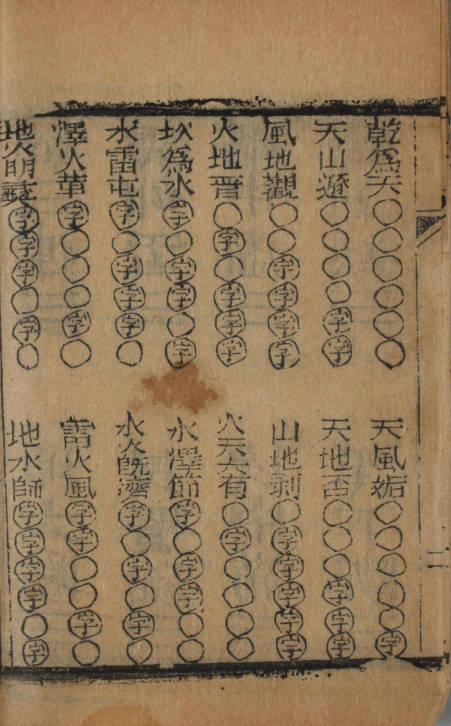 乾為天○○○○○○
天風姤○○○○○字
天山遯○○○○字字
天地否○○○字字字
風地觀○○字字字字
山地剥○字字字字字
火地晋○字○字字字
火天大有○字○○○○
坎為水字○字字○字
水澤節字○字字○○
水雷屯字○字字字○
水火既濟字○字○字○
澤火革字○○○字○
雷火風字字○○字○
地火明彝字字字○字○
地水師字字字字○字
二